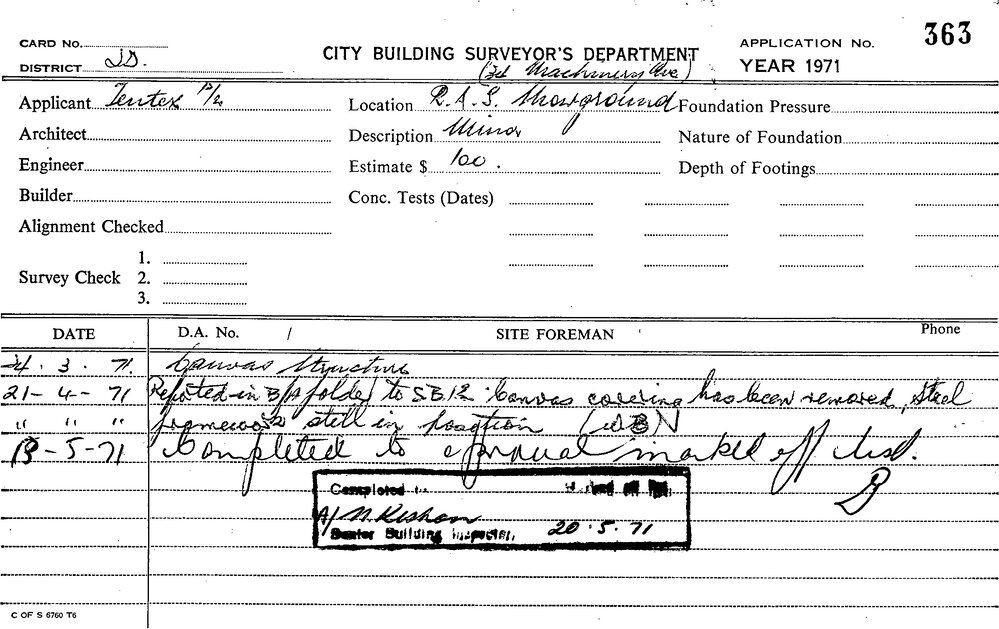 CARD No.
DISTRICT
CITY BUILDING SURVEYOR'S DEPARTMENT
APPLICATION No. 363
YEAR 1971
(3d Machinery Ave)
Applicant Tentex P/L
Location R.A.S. Showground
Foundation Pressure
Architect
Description Minor
Nature of Foundation
Engineer
Estimate $ 100.
Depth of Footings
Builder
Conc. Tests (Dates)
Alignment Checked
Survey Check
1.
2.
3.
DATE
D.A. No. /
SITE FOREMAN
Phone
24. 3. 71. Canvas Structure
21-4-71 Reported in B/A folder to S.B.I2 Canvas covering has been removed, Steel
" " " framework still in position
-5-71 Completed to approval marked off list.
Completed
A/
Senior Building Inspector.
20.5.71
C OF S 6760 T6